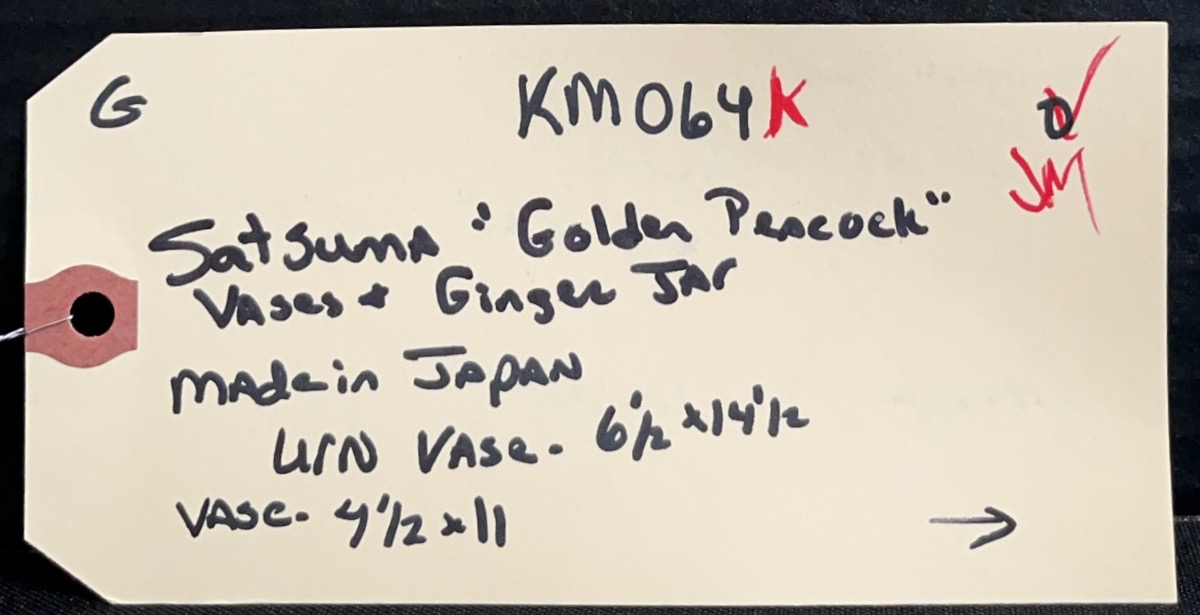 G KM064K 0
JM
Satsuma "Golden Peacock"
Vases + Ginger Jar
Made in Japan
Urn Vase. 6 1/2 x 14 1/2
Vase. 4 1/2 x 11
→